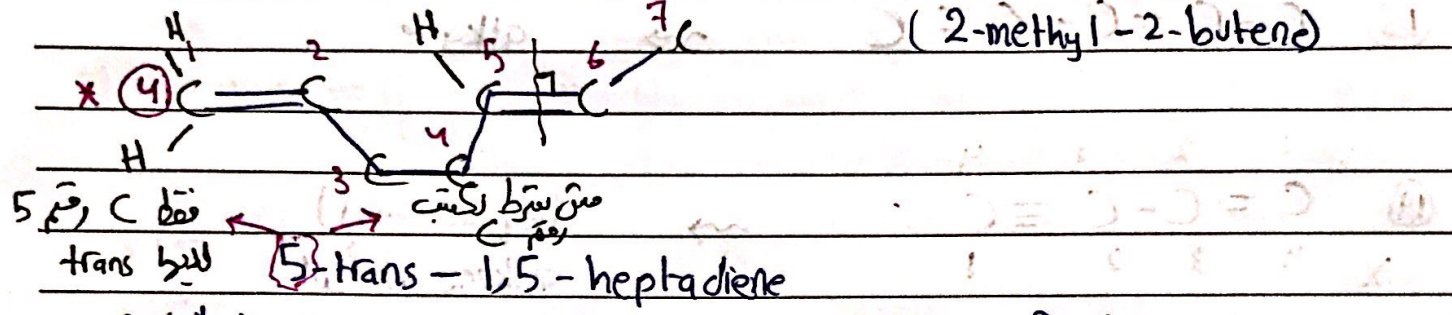 (2-methyl-2-butene)
H 1 2 H 5 6 7 C
* 4 C = C C = C
H 3 C - C 4
فقط C رقم 5 مش شرط نكتب
للي trans رقم C
5-trans - 1,5 - heptadiene